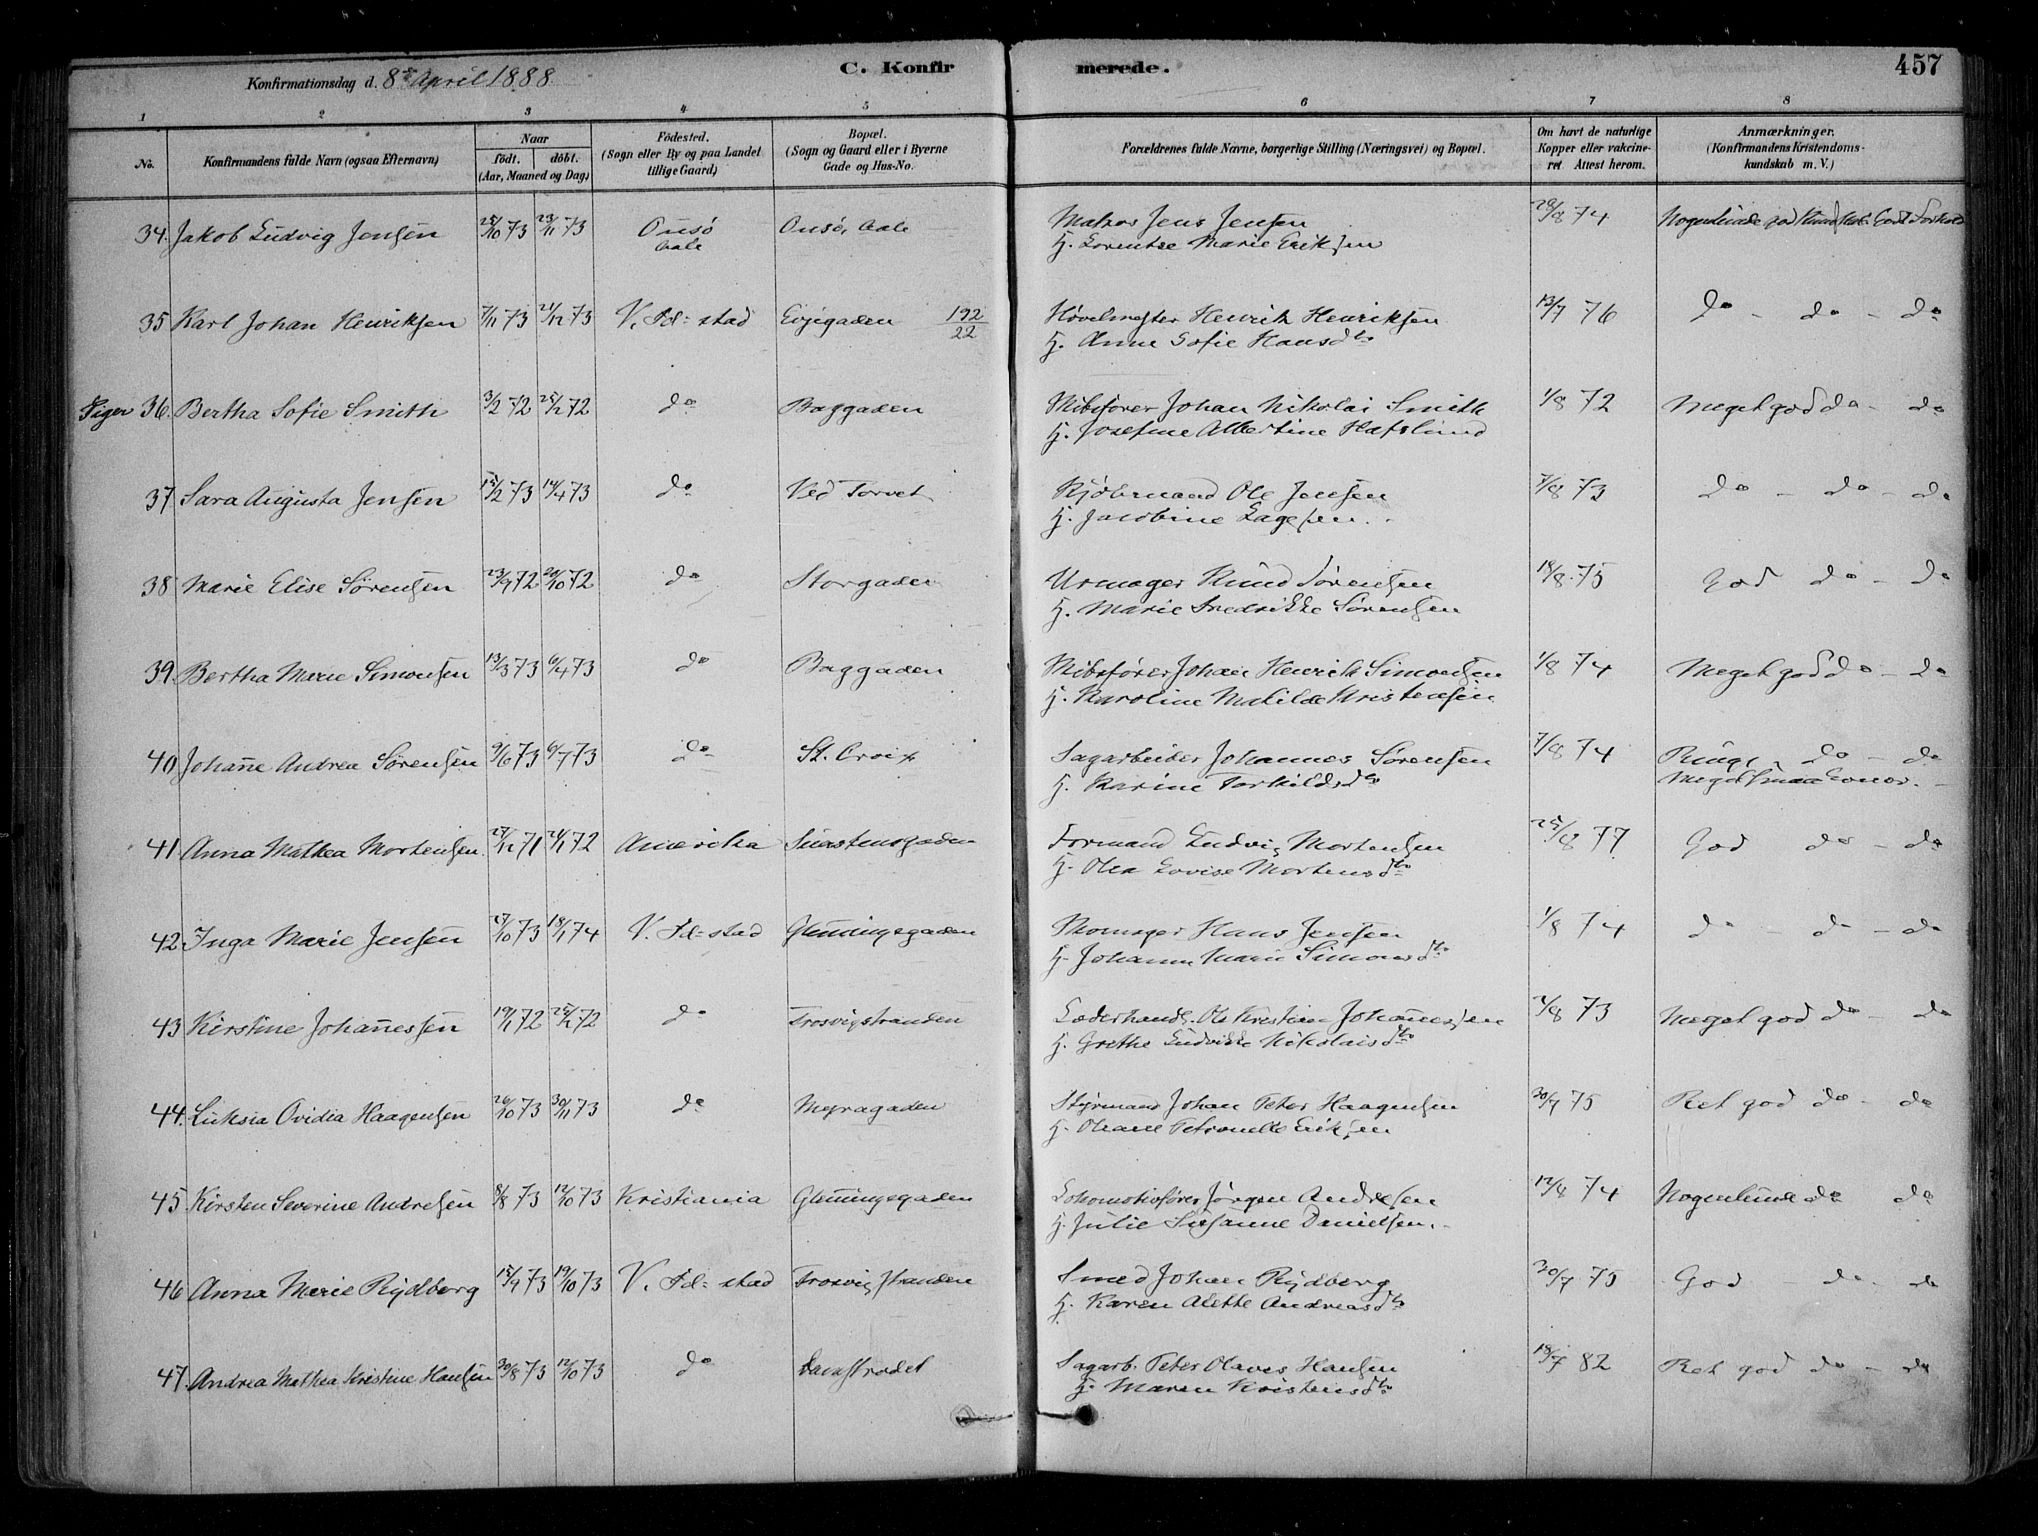 Konfirmationsdag d. 8de April 1888.
C. Konfirmerede.
457
1 2 3 4 5 6 7 8
No. Konfirmandens fulde Navn (ogsaa Efternavn) Naar født. døbt. (Aar, Maaned og Dag) Fødested. (Sogn eller By og paa Landet tillige Gaard) Bopæl. (Sogn og Gaard eller i Byerne Gade og Hus-No. Forældrenes fulde Navne, borgerlige Stilling (Næringsvei) og Bopæl. Om havt de naturlige Kopper eller vakcineret Attest herom. Anmærkninger. (Konfirmandens Kristendomskundskab m. V.)
34. Jakob Ludvig Jensen 25/10 73 23/11 73 Onsø Aale Onsø, Aale Matros Jens Jensen 28/8 74 Nogenlunde god Kundskab. Godt Forhold
H. Lorentse Marie Eriksen
35 Karl Johan Henriksen 7/11 73 21/12 73 V. Fd=stad Evjegaden 192/22 Høvelmester Henrik Henriksen 13/7 76 do - do - do
H. Anne Sofie Hansdtr
Piger 36. Bertha Sofie Smith 3/2 72 25/2 72 do Baggaden Skibsfører Johan Nikolai Smith 1/8 72 Meget god do - do
H. Josefine Albertine Hafslund
37 Sara Augusta Jensen 15/2 73 14/4 73 do Ved Torvet Kjøbmand Ole Jensen 7/8 73 do - do - do
H. Jacobine Lagesen.
38 Marie Elise Sørensen 23/9 72 20/10 72 do Storgaden Urmager Knud Sørensen 18/8 75 God do - do
H. Marie Fredrikke Sørensen
39. Bertha Marie Simonsen 13/3 73 6/4 73 do Baggaden Skibsfører Johan Henrik Simonsen 1/8 74 Meget god do - do
H. Karoline Matilde Kristensen
40 Johanne Andrea Sørensen 9/6 73 6/7 73 do St. Croix Sagarbeider Johannes Sørensen 7/8 74 Ringe do - do
H. Karine Torkildsdtr Meget smaa Evner.
41. Anna Mathea Mortensen. 27/12 71 21/1 72 Amerika Formand Ludvig Mortensen 25/8 77 God do - do
H. Olea Lovise Mortensdtr
42. Inga Marie Jensen 27/10 73 18/1 74 V. Fd=stad Glemmingegaden Skomager Hans Jensen 1/8 74 do - do - do
H. Johanne Marie Simonsdtr
43 Kirstine Johannessen 19/1 72 25/2 72 do Trosvigstranden Læderhandl. Ole Kristian Johannessen 7/8 73 Meget god do - do
H. Grethe Ludvikke Nikolaisdtr
44. Luksia Ovidia Haagensen 26/10 73 30/11 73 do Styrmand Johan Peter Haagensen 30/7 75 Ret god do - do
H. Oliane Petronelle Eriksen
45 Kirsten Severine Andresen 8/8 73 12/10 73 Kristiania Glemmingegaden Lokomotivfører Jørgen Andresen 12/4 74 Nogenlunde do do
H. Julie Susanne Danielsen.
46 Anna Marie Rydberg 15/9 73 19/10 73 V. Fd=stad Trosvigstranden Smed Johan Rydberg 30/7 75 God do - do
H. Karen Alette Andreasdtr
47. Andrea Mathea Kristine Hansen 30/8 73 12/10 73 do Damstrædet Sagarb. Peter Olaves Hansen 18/7 82 Ret god do - do
H. Maren Kristensdtr